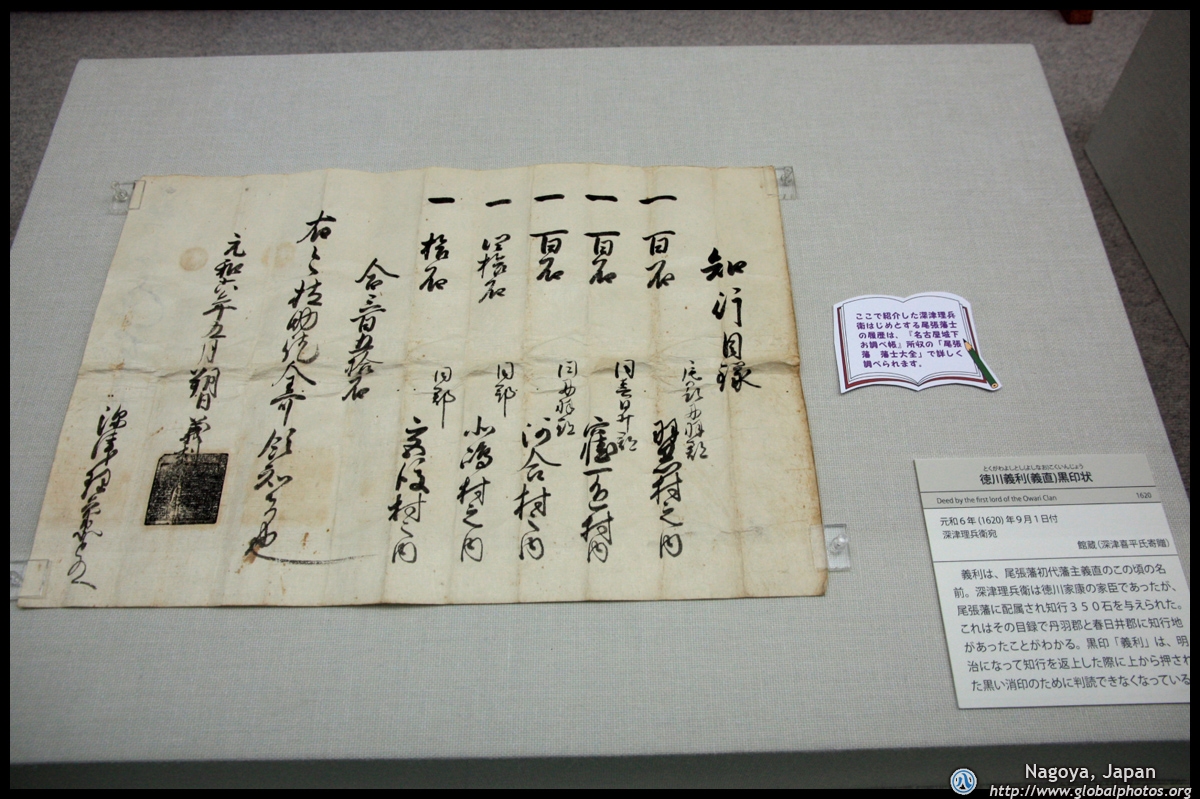 知行目録
一 百石
丹羽郡
村之内
一 百石
同春日井郡
村内
一 百石
同丹羽郡
河合村之内
一 四拾石
同郡
小嶋村之内
一 拾石
同郡
村之内
合三百五拾石
右之扶助訖全可領知者也
元和六年五月朔日 義利
深津理兵衛とのへ
ここで紹介した深津理兵
衛はじめとする尾張藩士
の履歴は、『名古屋城下
お調べ帳』所収の「尾張
藩 藩士大全」で詳しく
調べられます。
とくがわよしとし(よしなお)こくいんじょう
徳川義利(義直)黒印状
Deed by the first lord of the Owari Clan 1620
元和6年(1620)年9月1日付
深津理兵衛宛
館蔵(深津喜平氏寄贈)
義利は、尾張藩初代藩主義直のこの頃の名
前。深津理兵衛は徳川家康の家臣であったが、
尾張藩に配属され知行350石を与えられた。
これはその目録で丹羽郡と春日井郡に知行地
があったことがわかる。黒印「義利」は、明
治になって知行を返上した際に上から押され
た黒い消印のために判読できなくなっている
Nagoya, Japan
http://www.globalphotos.org